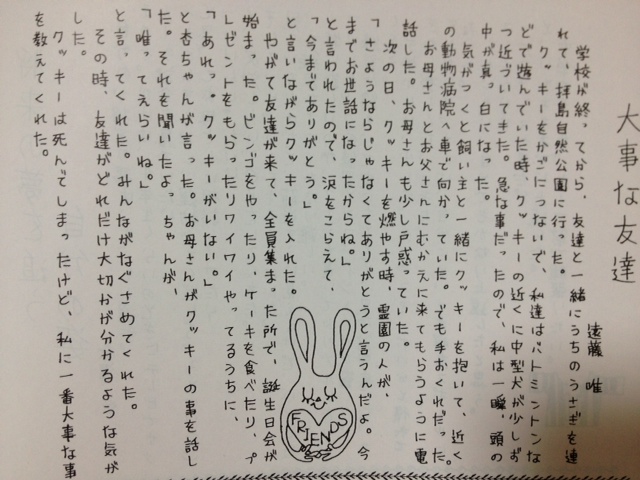 大事な友達
遠藤 唯
学校が終ってから、友達と一緒にうちのうさぎを連
れて、拝島自然公園に行った。
クッキーをかごにつないで、私達はバトミントンな
どで遊んでいた時、クッキーの近くに中型犬が少しず
つ近づいてきた。急な事だったので、私は一瞬、頭の
中が真っ白になった。
気がつくと飼い主と一緒にクッキーを抱いて、近く
の動物病院へ車で向かっていた。でも手おくれだった。
お母さんとお父さんにむかえに来てもらうように電
話した。お母さんも少し戸惑っていた。
次の日、クッキーを燃やす時、霊園の人が、
「さようならじゃなくてありがとうと言うんだよ。今
までお世話になったからね。」
と言われたので、涙をこらえて、
「今までありがとう。」
と言いながらクッキーを入れた。
やがて友達が来て、全員集まった所で、誕生日会が
始まった。ビンゴをやったり、ケーキを食べたり、プ
レゼントをもらったりワイワイやってるうちに、
「あれっ。クッキーがいない。」
と杏ちゃんが言った。お母さんがクッキーの事を話し
た。それを聞いたよっちゃんが、
「唯ってえらいね。」
と言ってくれた。みんながなぐさめてくれた。
その時、友達がどれだけ大切かが分かるような気が
した。
クッキーは死んでしまったけど、私に一番大事な事
を教えてくれた。
FRIENDS